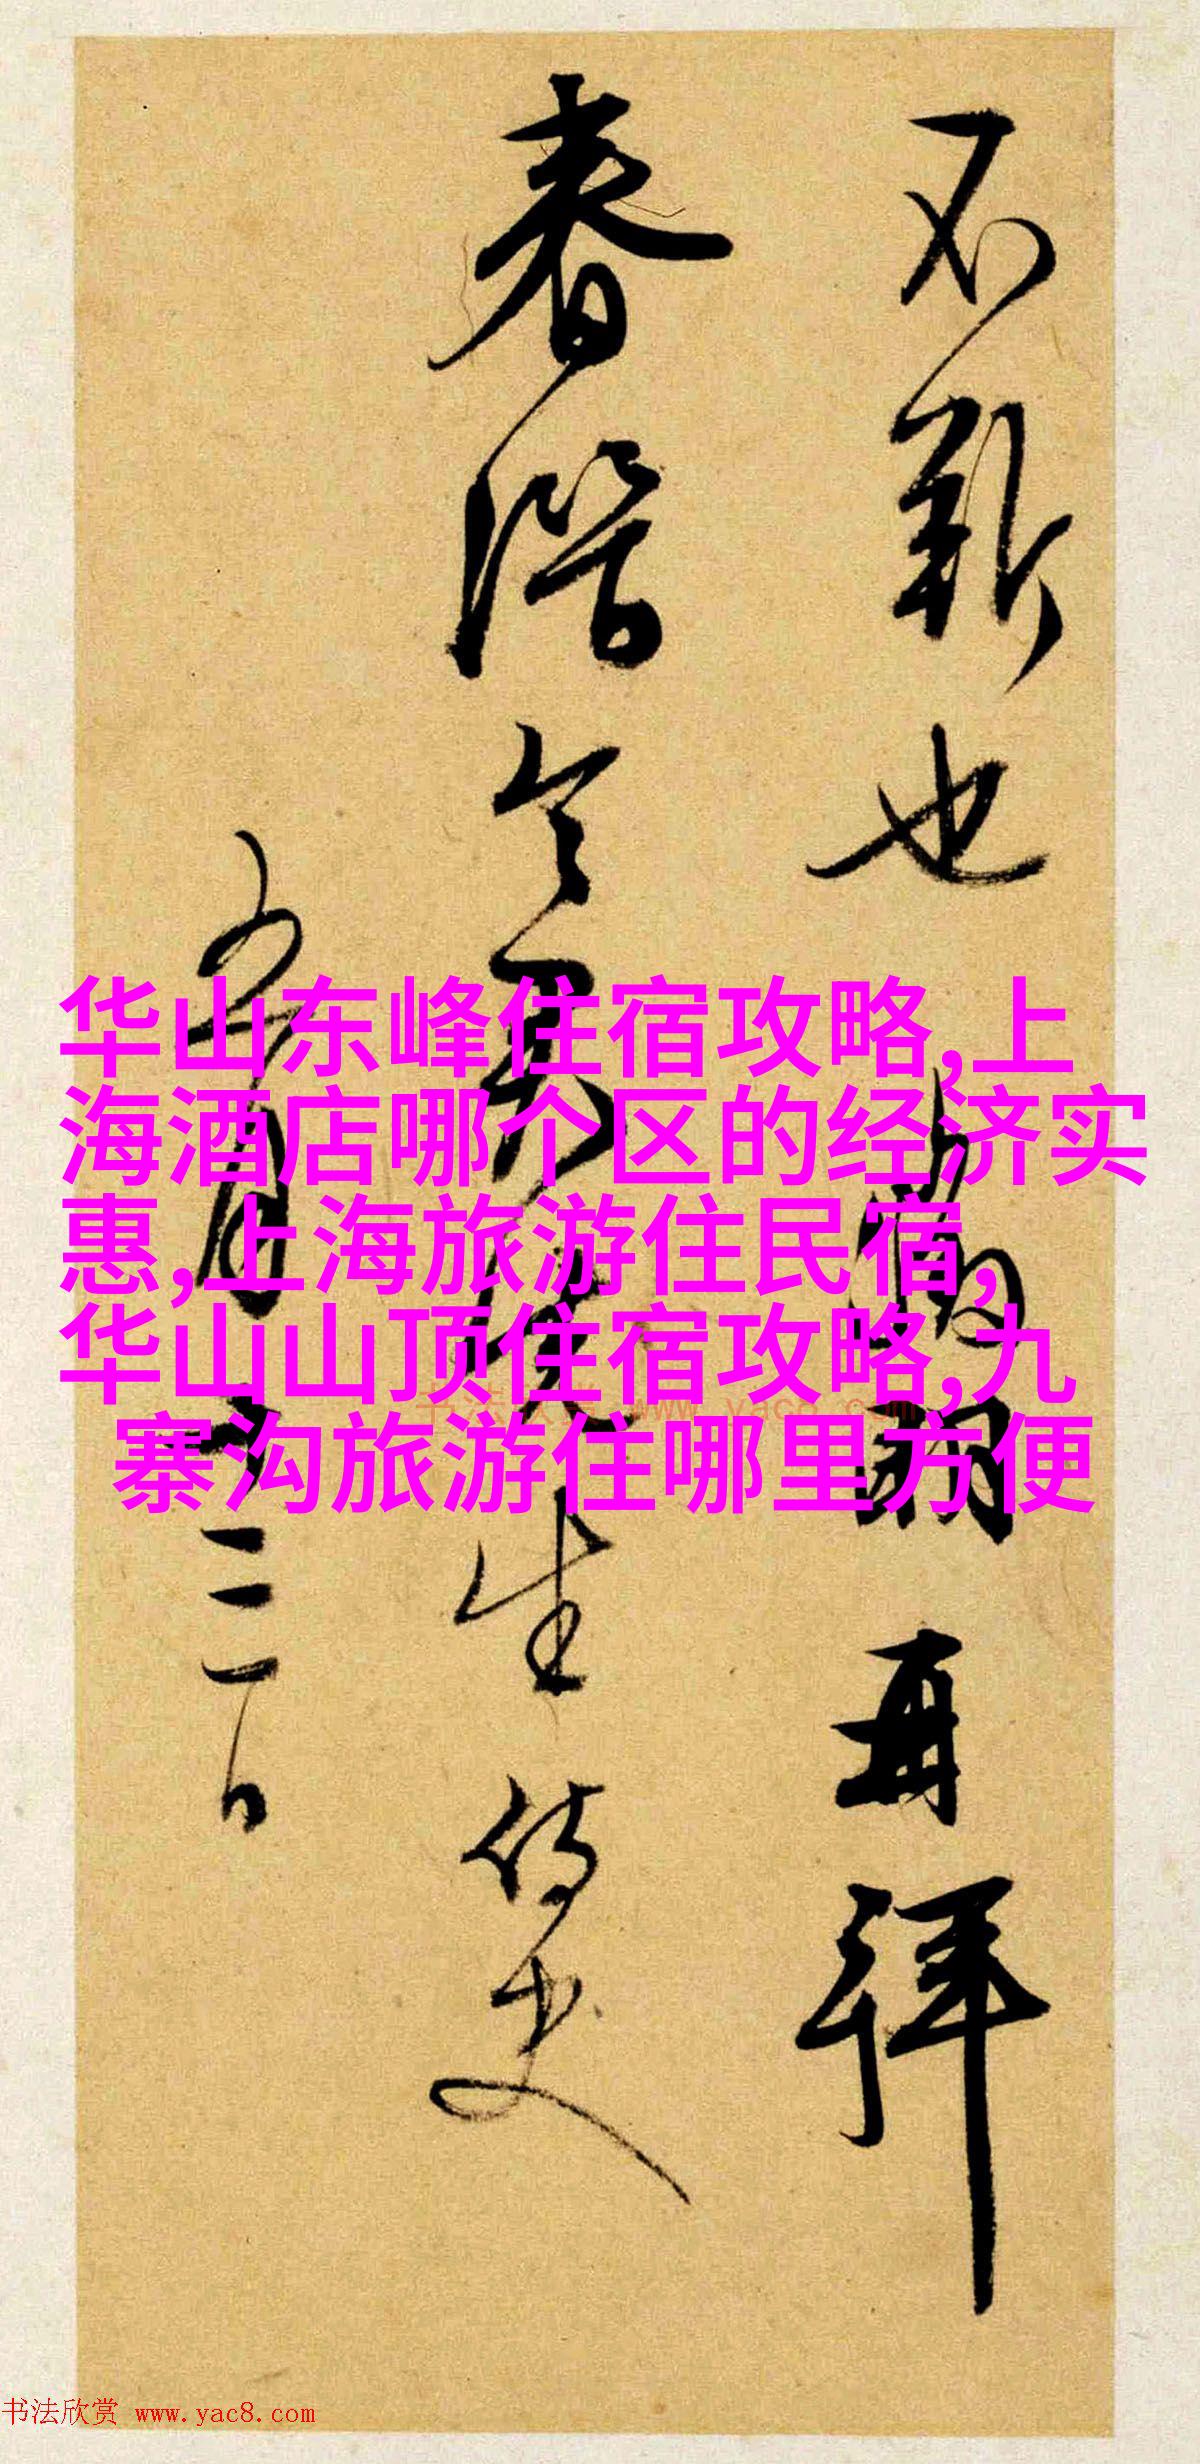 不斩也
再拜
春深令
生侍史
五月十三日
华山东峰住宿攻略,上
海酒店哪个区的经济实
惠,上海旅游住民宿,
华山山顶住宿攻略,九
寨沟旅游住哪里方便
书法欣赏 www.yac8.com